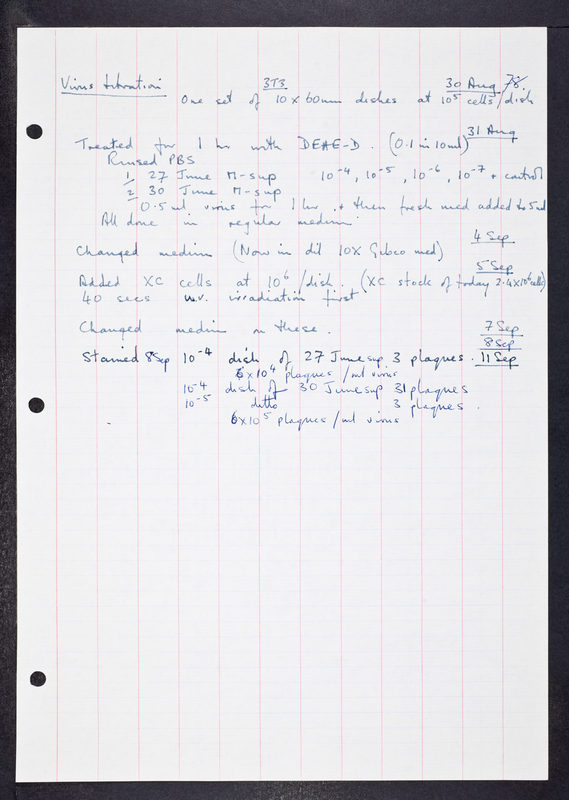 Virus titration 3T3 30 Aug 78
One set of 10 x 60mm dishes at 10⁵ cells/dish
31 Aug
Treated for 1 hr with DEAE-D. (0.1 in 10ml)
Rinsed PBS
1/ 27 June M-sup 10⁻⁴, 10⁻⁵, 10⁻⁶, 10⁻⁷ + control
2/ 30 June M-sup
0.5ml virus for 1 hr. + then fresh med added to 5ml
All done in regular medium
4 Sep
Changed medium (Now in dil 10X Gibco med)
5 Sep
Added XC cells at 10⁶/dish. (XC stock of today 2.4x10⁶ cells)
40 secs u.v. irradiation first
Changed medium on these. 7 Sep
8 Sep
Stained 8 Sep 10⁻⁴ dish of 27 June sup 3 plaques. 11 Sep
6x10⁴ plaques/ml virus
10⁻⁴ dish of 30 June sup 31 plaques
10⁻⁵ ditto 3 plaques.
6x10⁵ plaques/ml virus